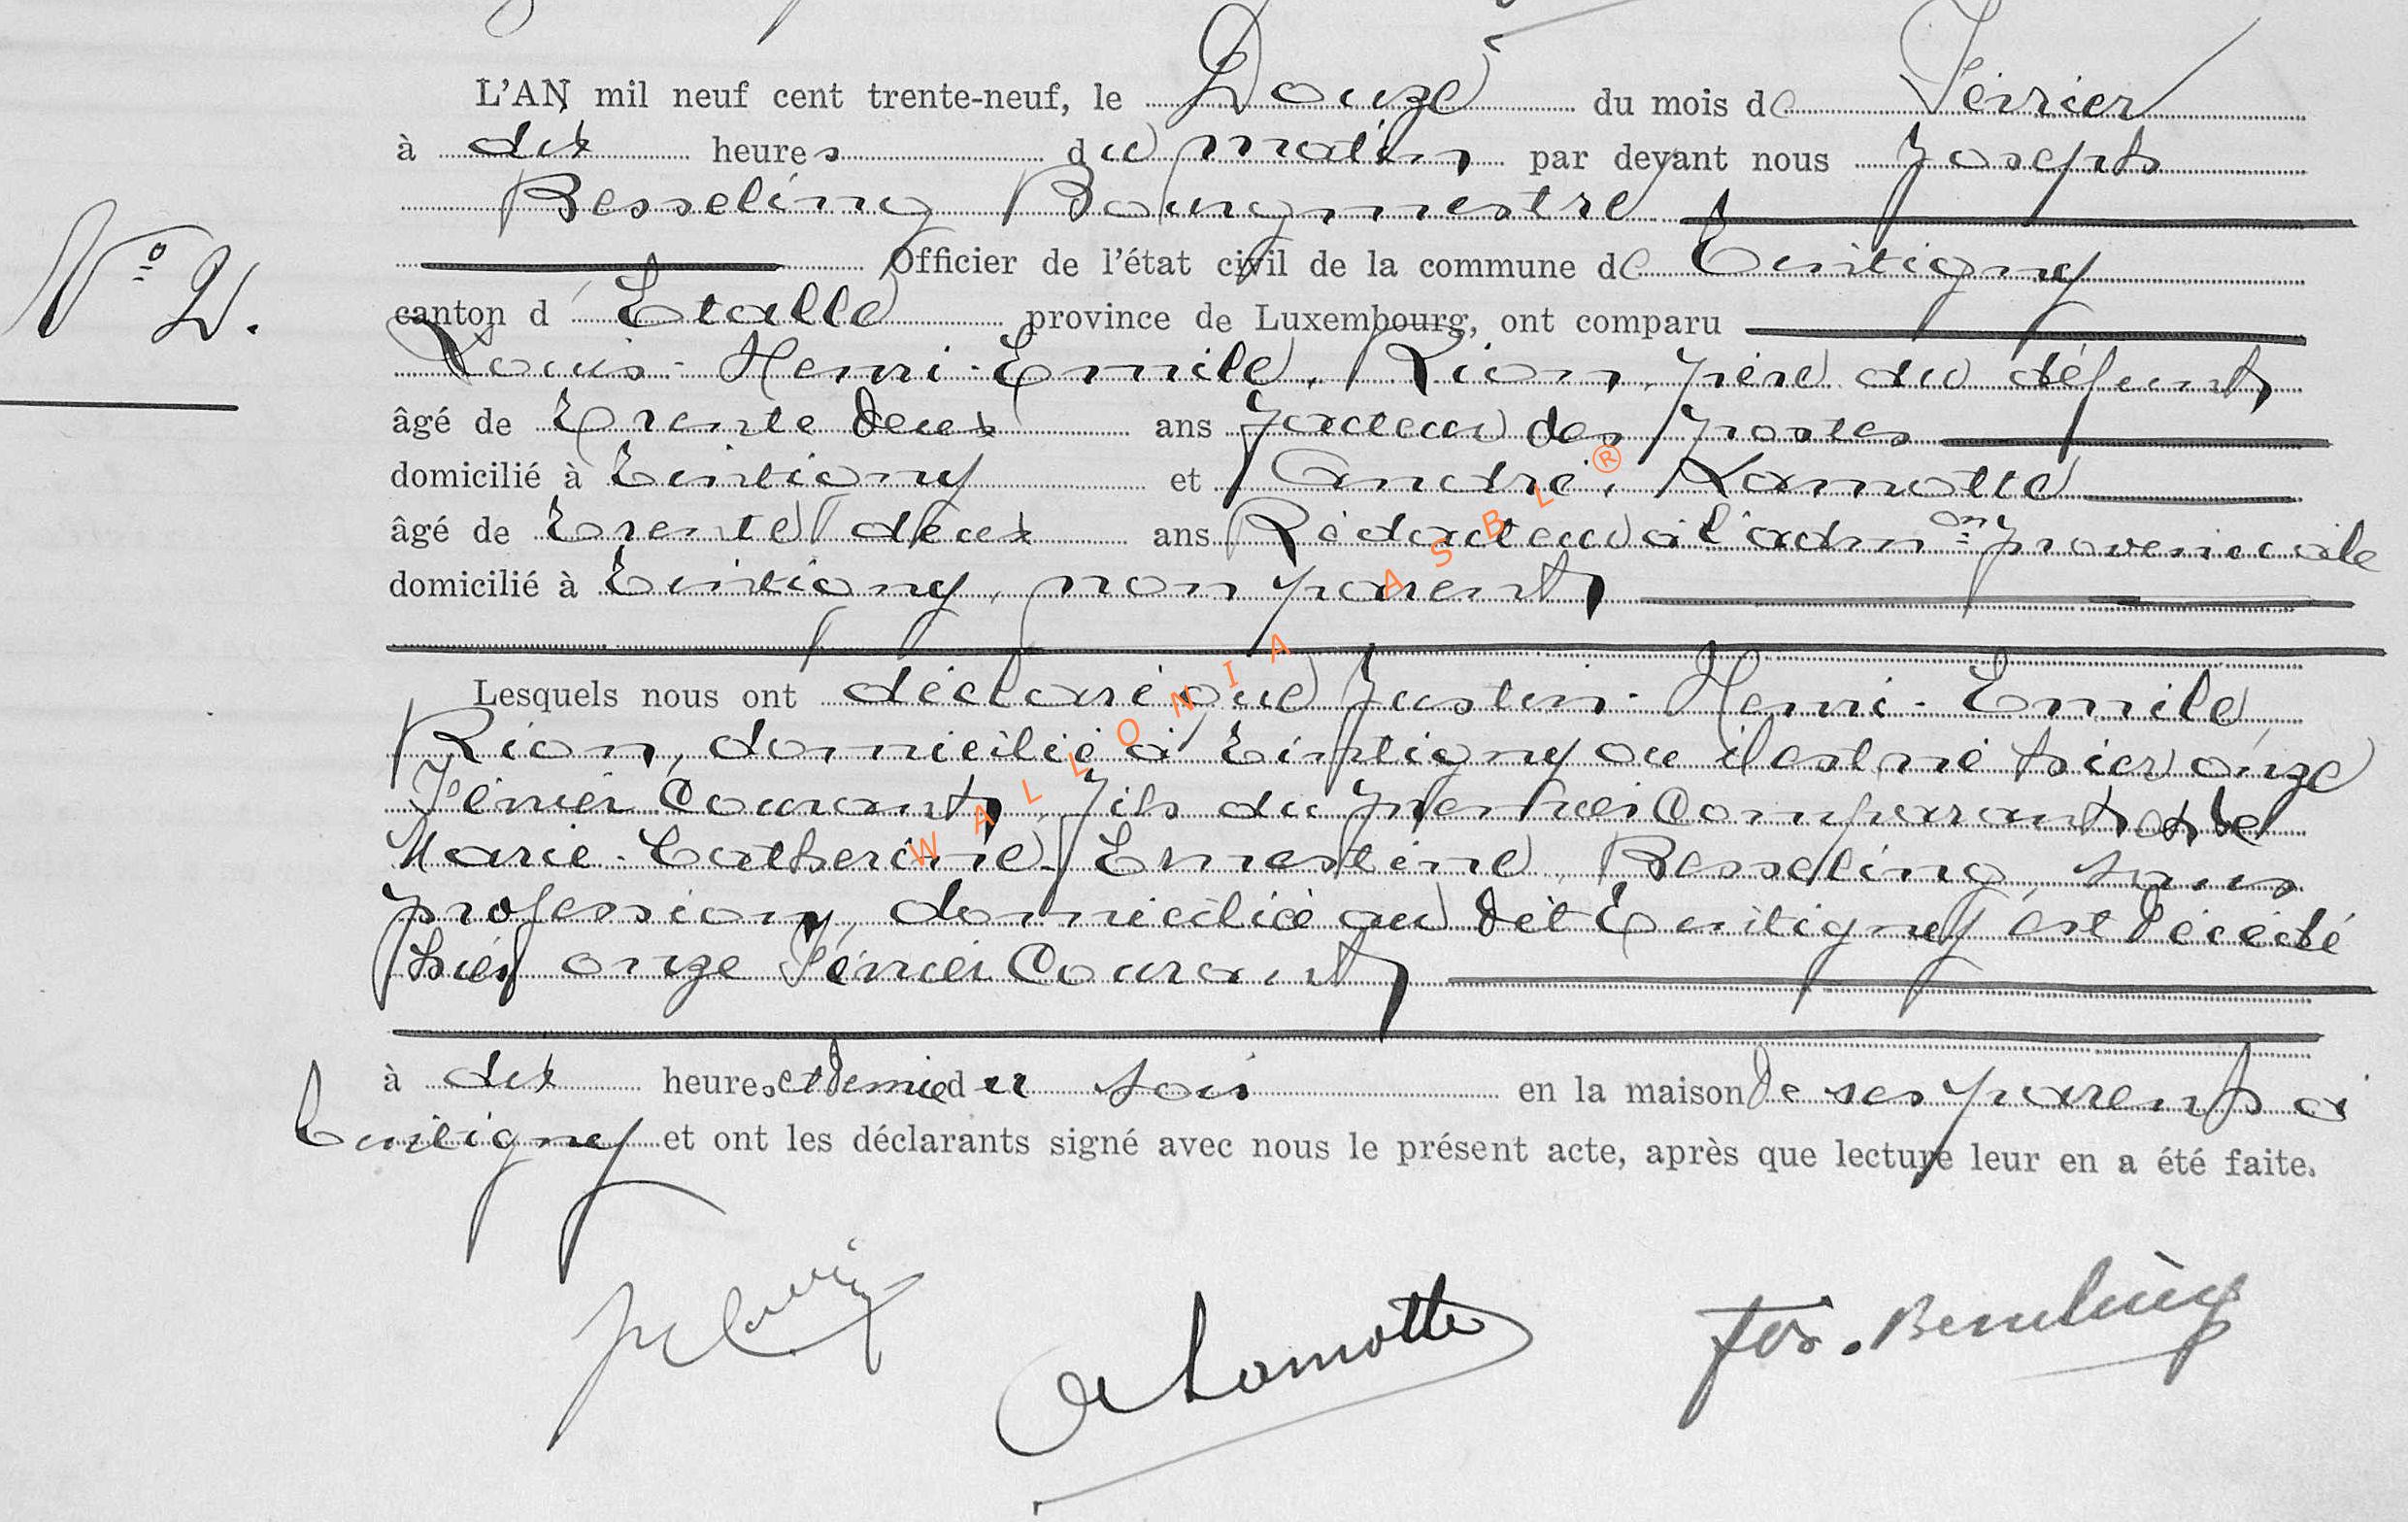 L'AN mil neuf cent trente-neuf, le Douze du mois de Février
à dix heures du matin par devant nous Joseph
Besseling Bourgmestre
Officier de l'état civil de la commune de Tintigny
canton d'Etalle province de Luxembourg, ont comparu
N° 2.
Louis-Henri-Emile, Rion, père du défunt
âgé de Trente deux ans facteur des postes
domicilié à Tintigny et André, Lamotte
âgé de Trente deux ans Rédacteur à l'admon provinciale
domicilié à Tintigny, non parent
Lesquels nous ont déclaré que Justin-Henri-Emile,
Rion, domicilié à Tintigny ou il est né hier onze
Février Courant, fils du premier Comparant et de
Marie-Catherine-Ernestine, Besseling, sans
profession, domiciliée au dit Tintigny est décédé
hier onze Février Courant
à dix heures et demie du soir en la maison de ses parents à
Tintigny et ont les déclarants signé avec nous le présent acte, après que lecture leur en a été faite.
A Lamotte
Jos. Besseling
WALLONIA ASBL ®